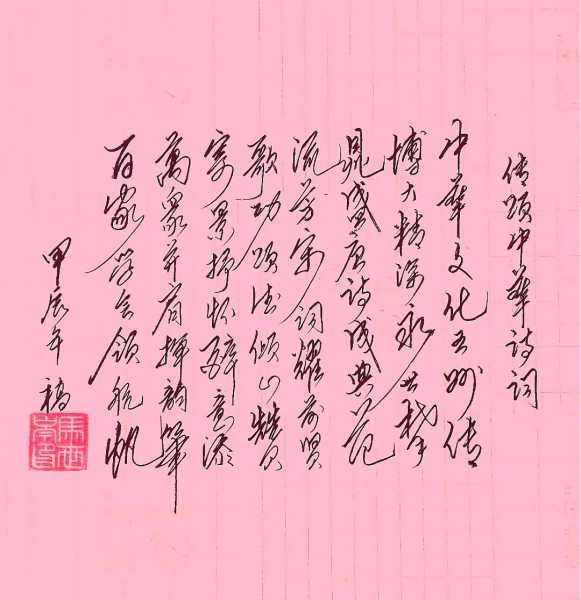 传颂中华诗词
中华文化玄妙传
博大精深永世攀
鼎盛唐诗成典范
流芳宋词耀前贤
歌功颂德倾心赞
写景抒怀醉意添
万众并肩挥韵笔
百家学会领航帆
甲辰年 稿